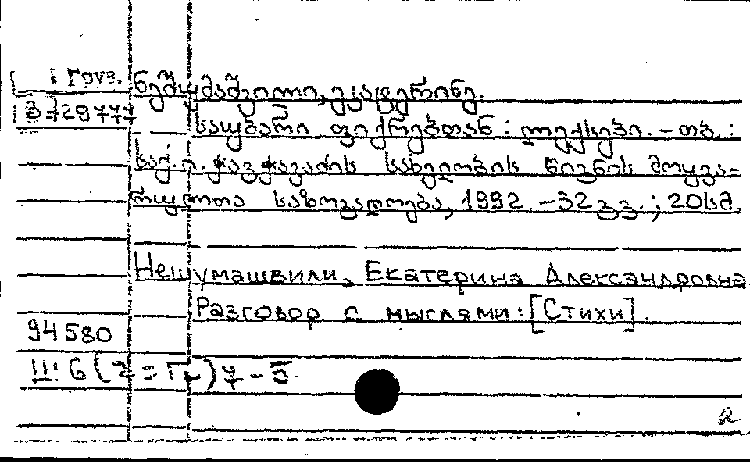 Груз. ნეშუმაშვილი, ეკატერინე.
3729777 საუბარი ფიქრებთან : ლექსები. – თბ. :
საქ. ი. ჭავჭავაძის სახელობის წიგნის მოყვა-
რულთა საზოგადოება, 1992. – 32 გვ. ; 20 სმ.
Нешумашвили, Екатерина Александровна
Разговор с мыслями : [Стихи].
94580
Ш6(2=Гр)7-5